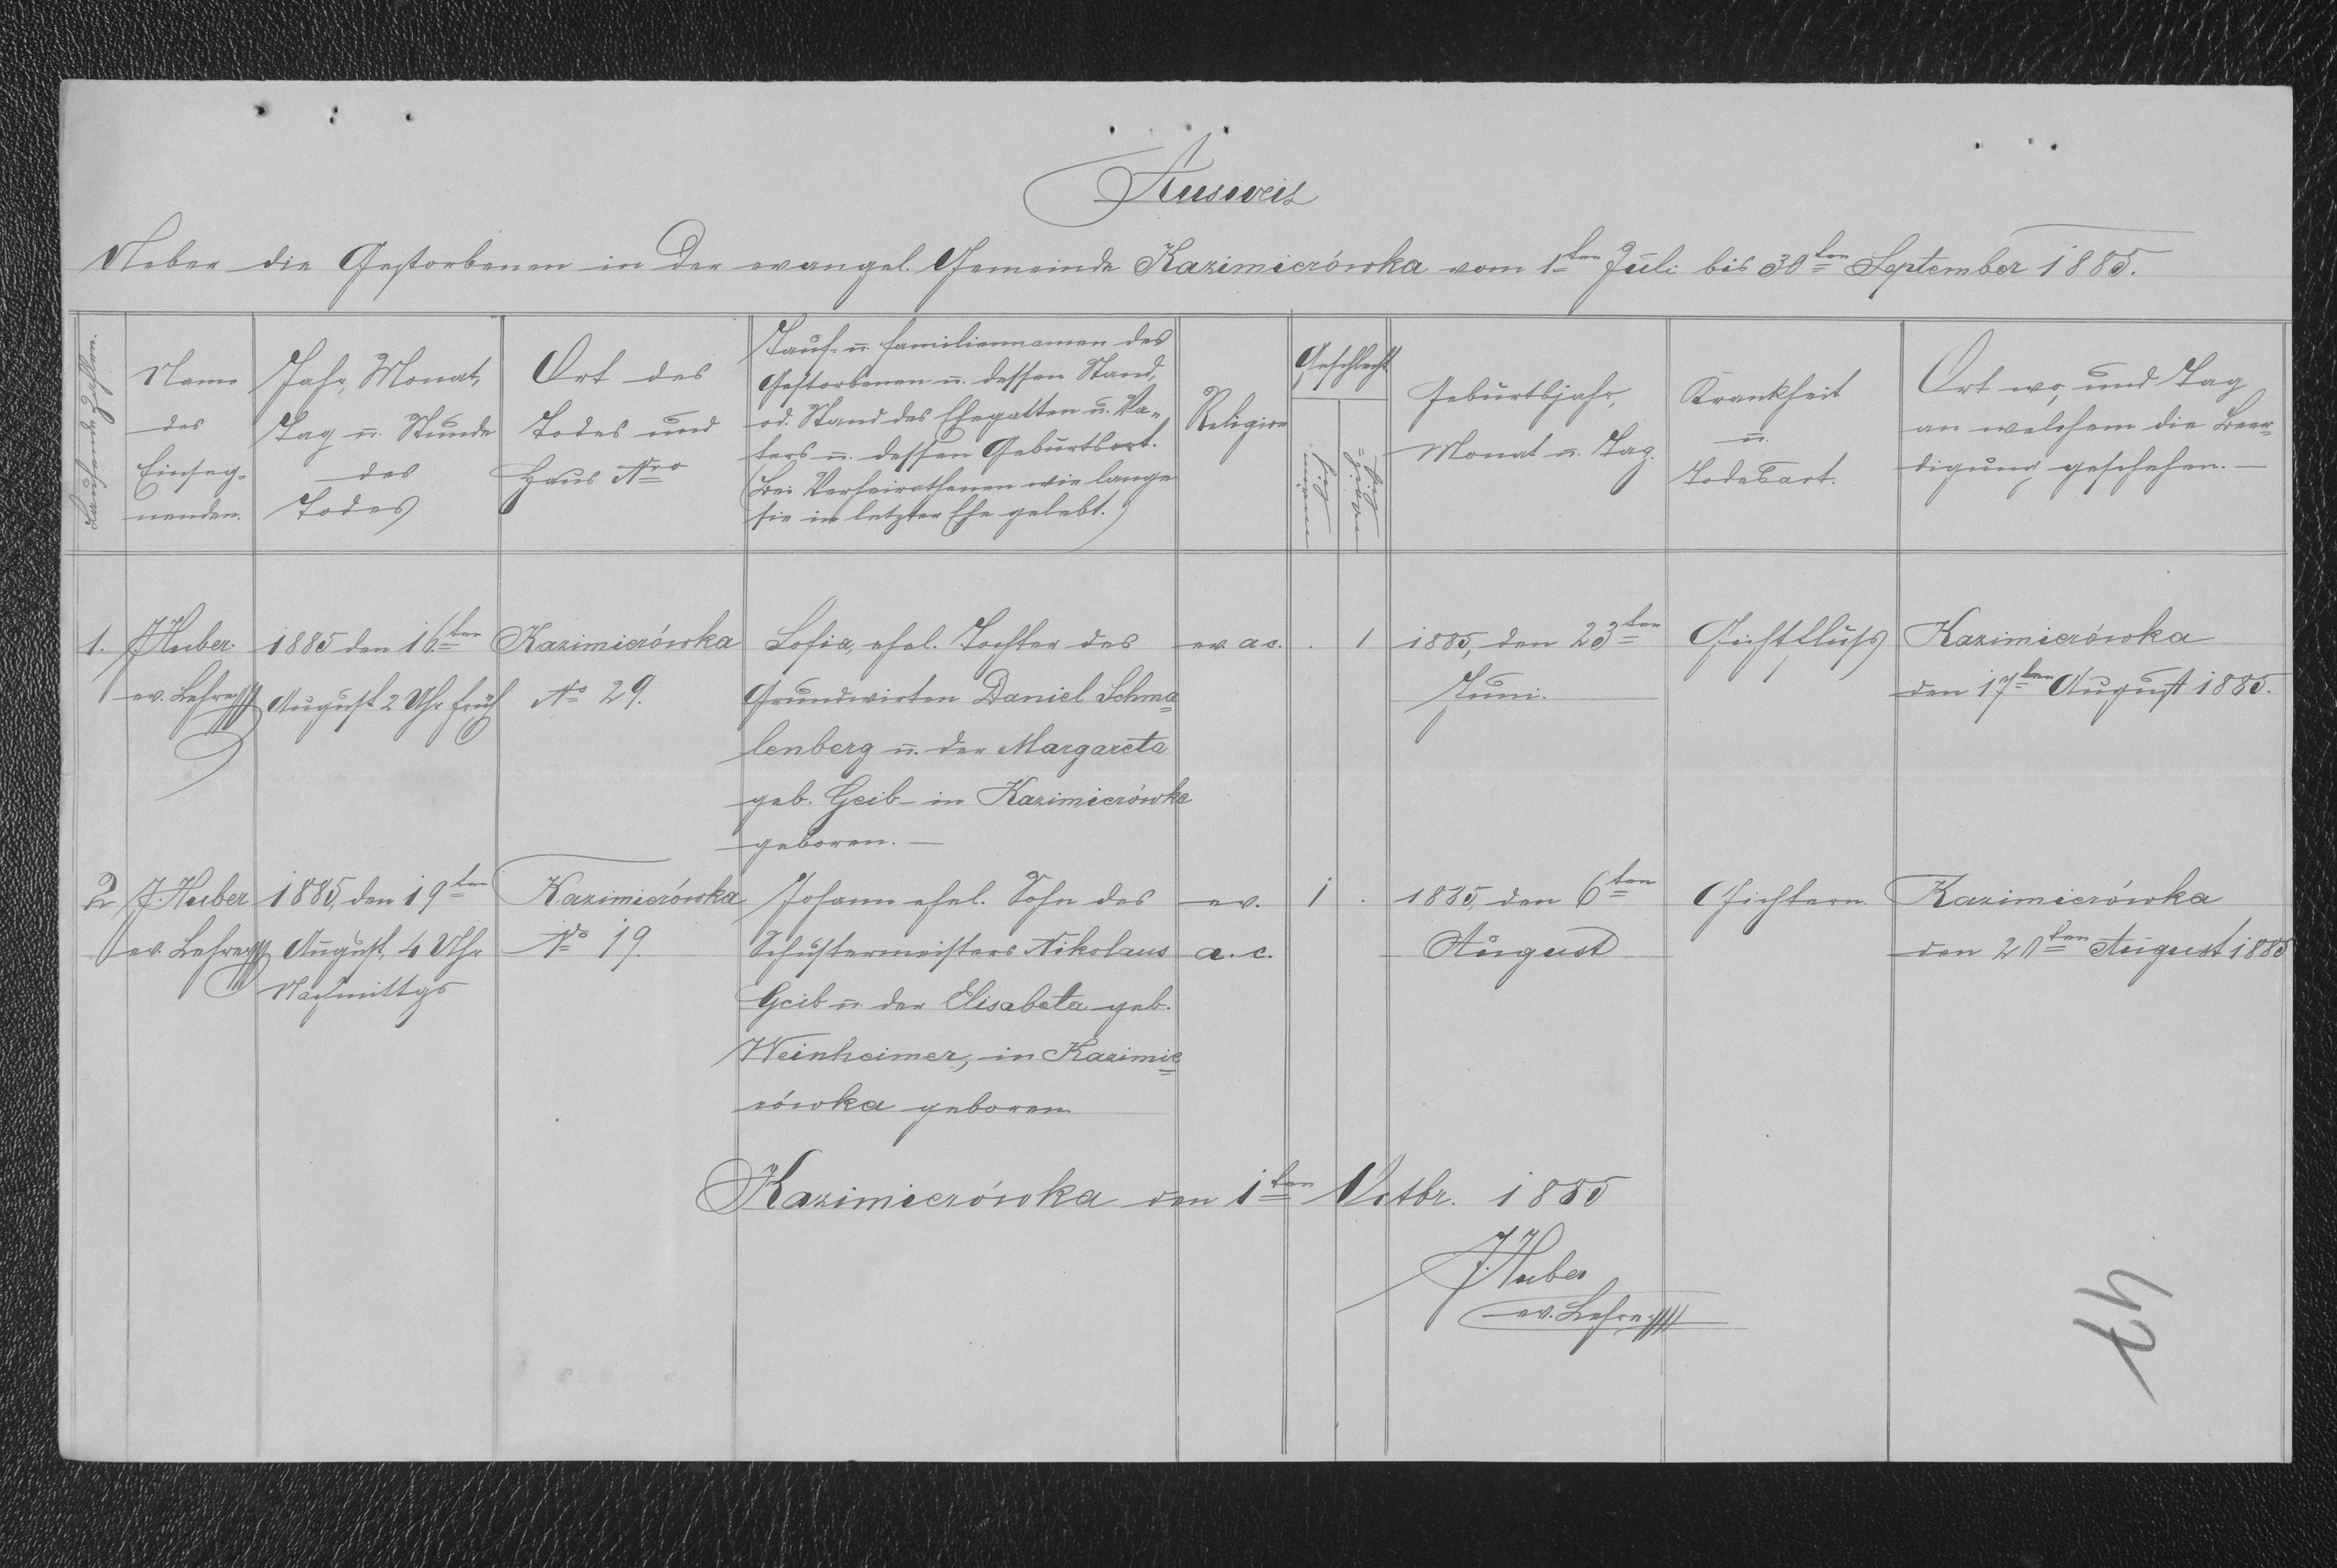 Ausweis
Ueber die Gestorbenen in der evangel. Gemeinde Kazimierówka vom 1ten Juli bis 30ten September 1885.
Laufende Zahlen.
Name
des
Einseg-
nenden.
Jahr, Monat,
Tag u. Stunde
des
Todes
Ort des
Todes und
Haus Nro
Tauf- u. Familiennamen des
Gestorbenen u. dessen Stand,
od. Stand des Ehegatten u. Va-
ters u. dessen Geburtsort.
(Bei Verheirathenen wie lange
sie in letzter Ehe gelebt.)
Religion
Geschlecht
Geburtsjahr,
Monat u. Tag.
Krankheit
u.
Todesart.
Ort wo, und Tag
an welchem die Beer-
digung geschehen. —
1. J. Huber 1885 den 16ten Kazimierówka Sofia, ehel. Tochter des ev. a c. . 1 1885, den 23ten Gichtfluss Kazimierówka
ev. Lehrer August 2 Uhr früh No 29. Grundwirten Daniel Schma= Juni. den 17ten August 1885.
lenberg u. der Margareta
geb. Geib in Kazimierówka
geboren. —
2 J. Huber 1885, den 19ten Kazimierówka Johann ehel. Sohn des ev. 1 . 1885, den 6ten Gichtern. Kazimierówka
ev. Lehrer August, 4 Uhr No 19. Schustermeisters Nikolaus a. c. August den 20ten August 1885
Nachmittgs Geib u. der Elisabeta geb.
Weinheimer, in Kazimie=
rówka geboren
Kazimierówka den 1ten Octbr. 1885
J. Huber
ev. Lehrer
47